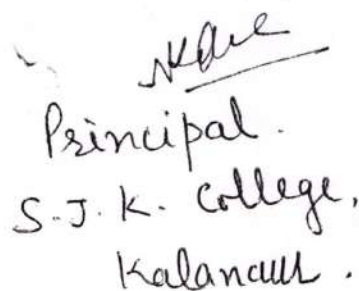 Principal.
S.J.K. College,
Kalanaur.